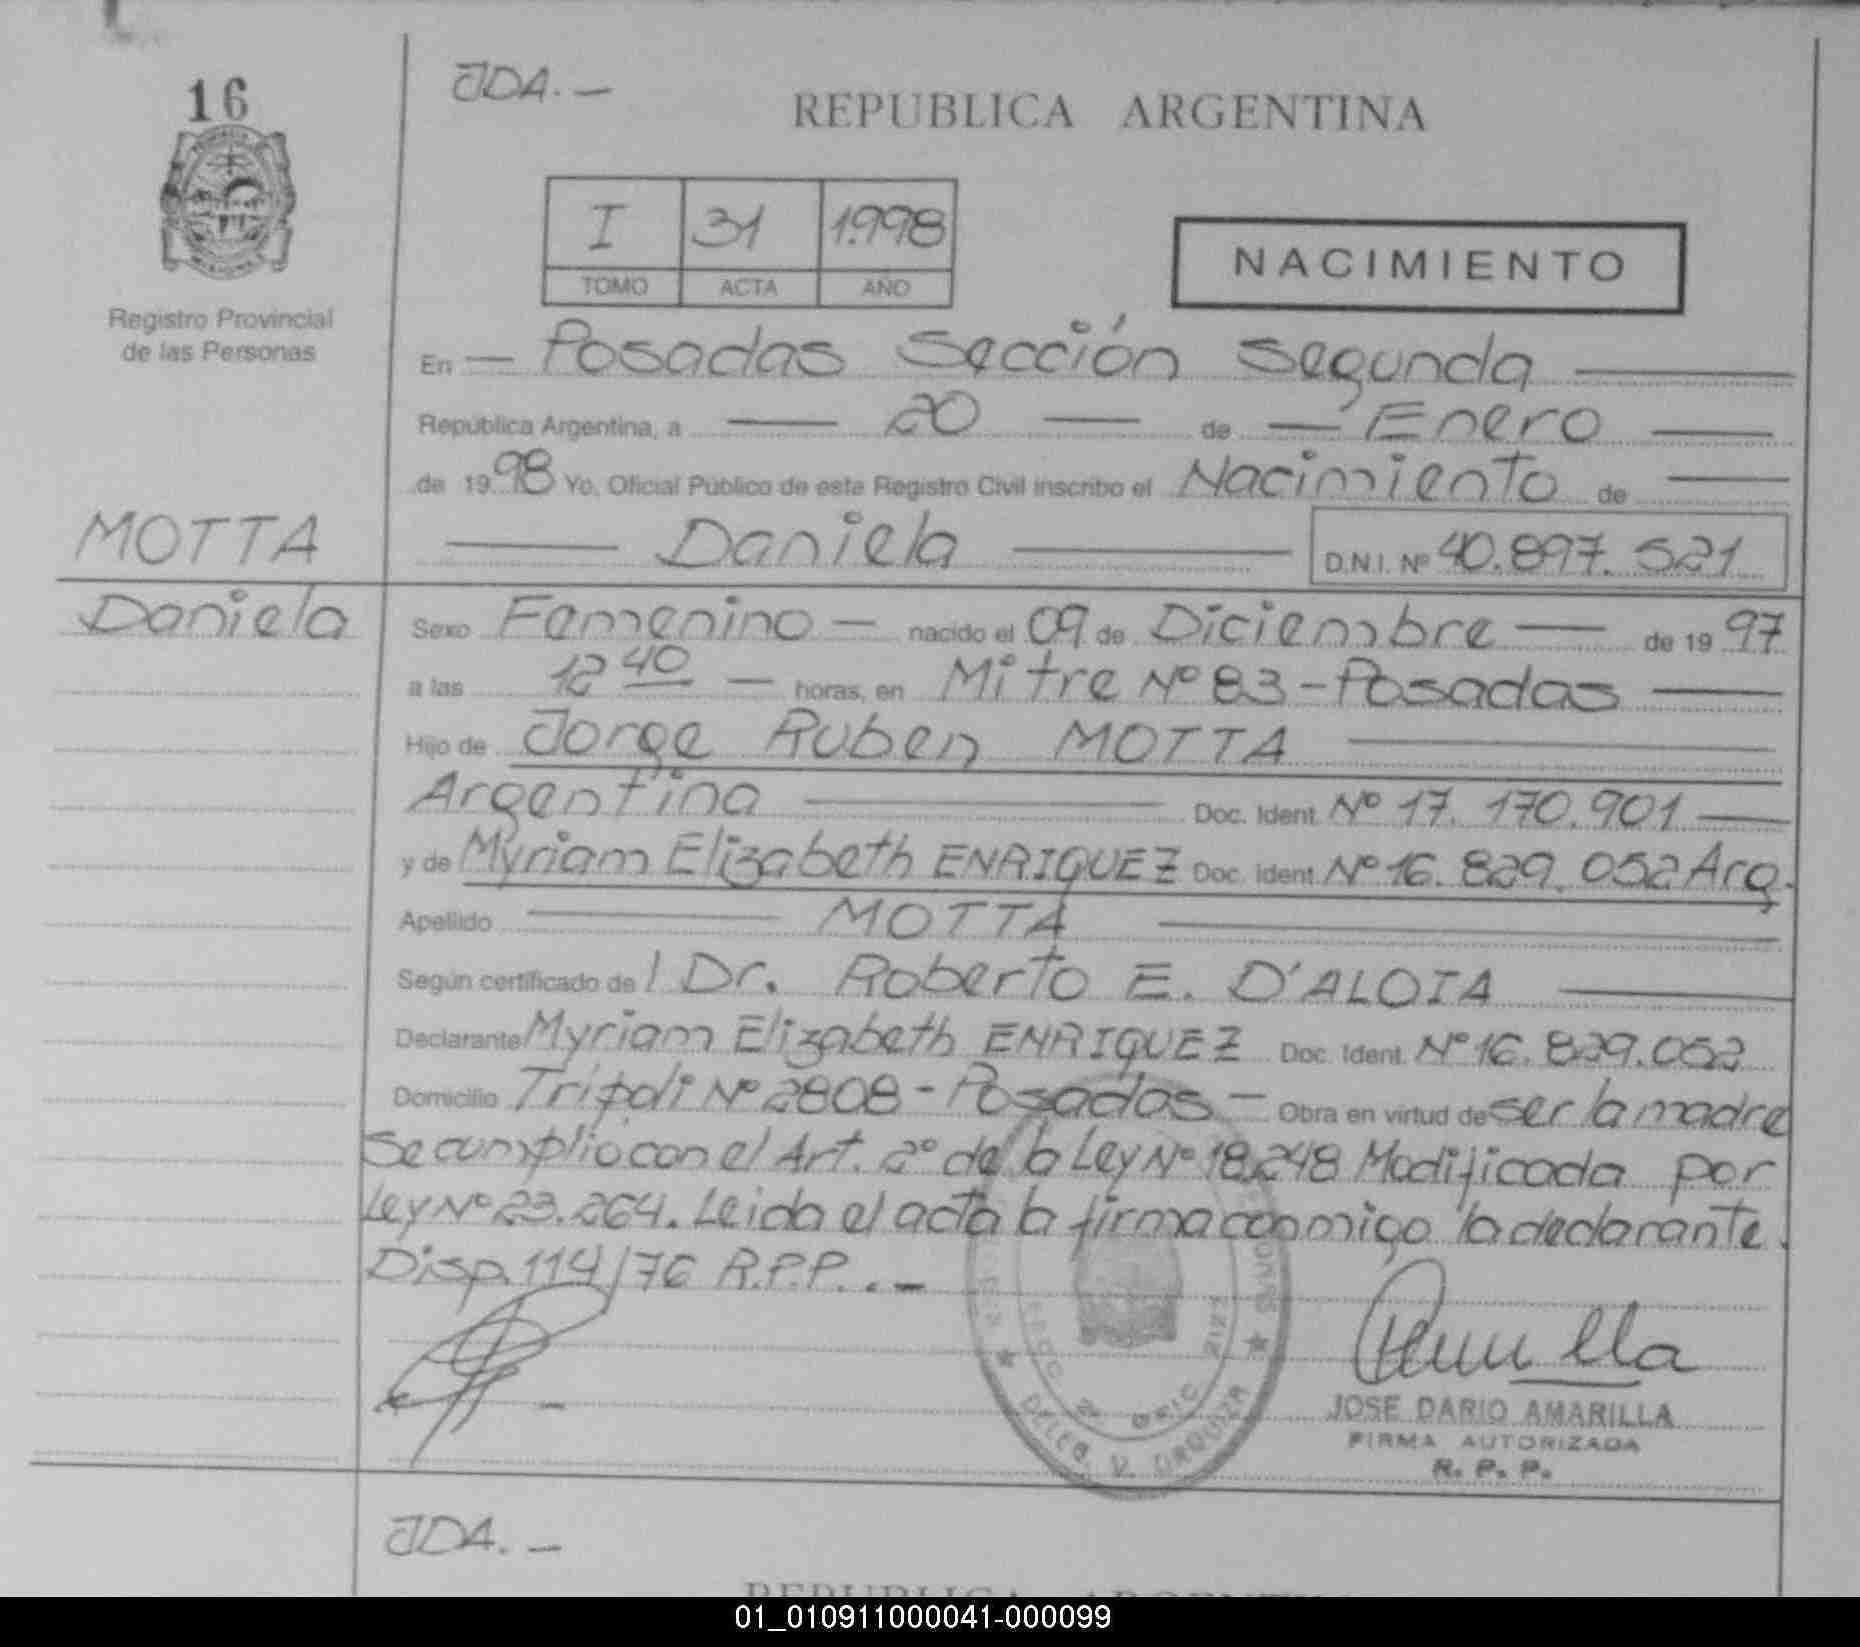 16
JDA.-
REPUBLICA ARGENTINA
I 31 1.998
TOMO ACTA AÑO
NACIMIENTO
Registro Provincial
de las Personas
En Posadas Sección Segunda
República Argentina, a 20 de Enero
de 1998 Yo, Oficial Público de este Registro Civil inscribo el Nacimiento de
MOTTA
Daniela D.N.I. Nº 40.897.521
Daniela
Sexo Femenino nacido el 09 de Diciembre de 1997
a las 12 40 horas, en Mitre Nº 83 - Posadas
Hijo de Jorge Ruben MOTTA
Argentina Doc. Ident. Nº 17.170.901
y de Myriam Elizabeth ENRIQUEZ Doc. Ident. Nº 16.829.052 Arg.
Apellido MOTTA
Según certificado del Dr. Roberto E. D'ALOIA
Declarante Myriam Elizabeth ENRIQUEZ Doc. Ident. Nº 16.829.052
Domicilio Tripoli Nº 2808 - Posadas - Obra en virtud de ser la madre
Se cumplió con el Art. 2º de la Ley Nº 18.248 Modificada por
Ley Nº 23.264. Leida el acta la firma conmigo la declarante.
Disp. 114/76 R.P.P. . -
DELEG. V. URQUIZA
JOSE DARIO AMARILLA
FIRMA AUTORIZADA
R. P. P.
JDA.-
REPUBLICA ARGENTINA
01_010911000041-000099